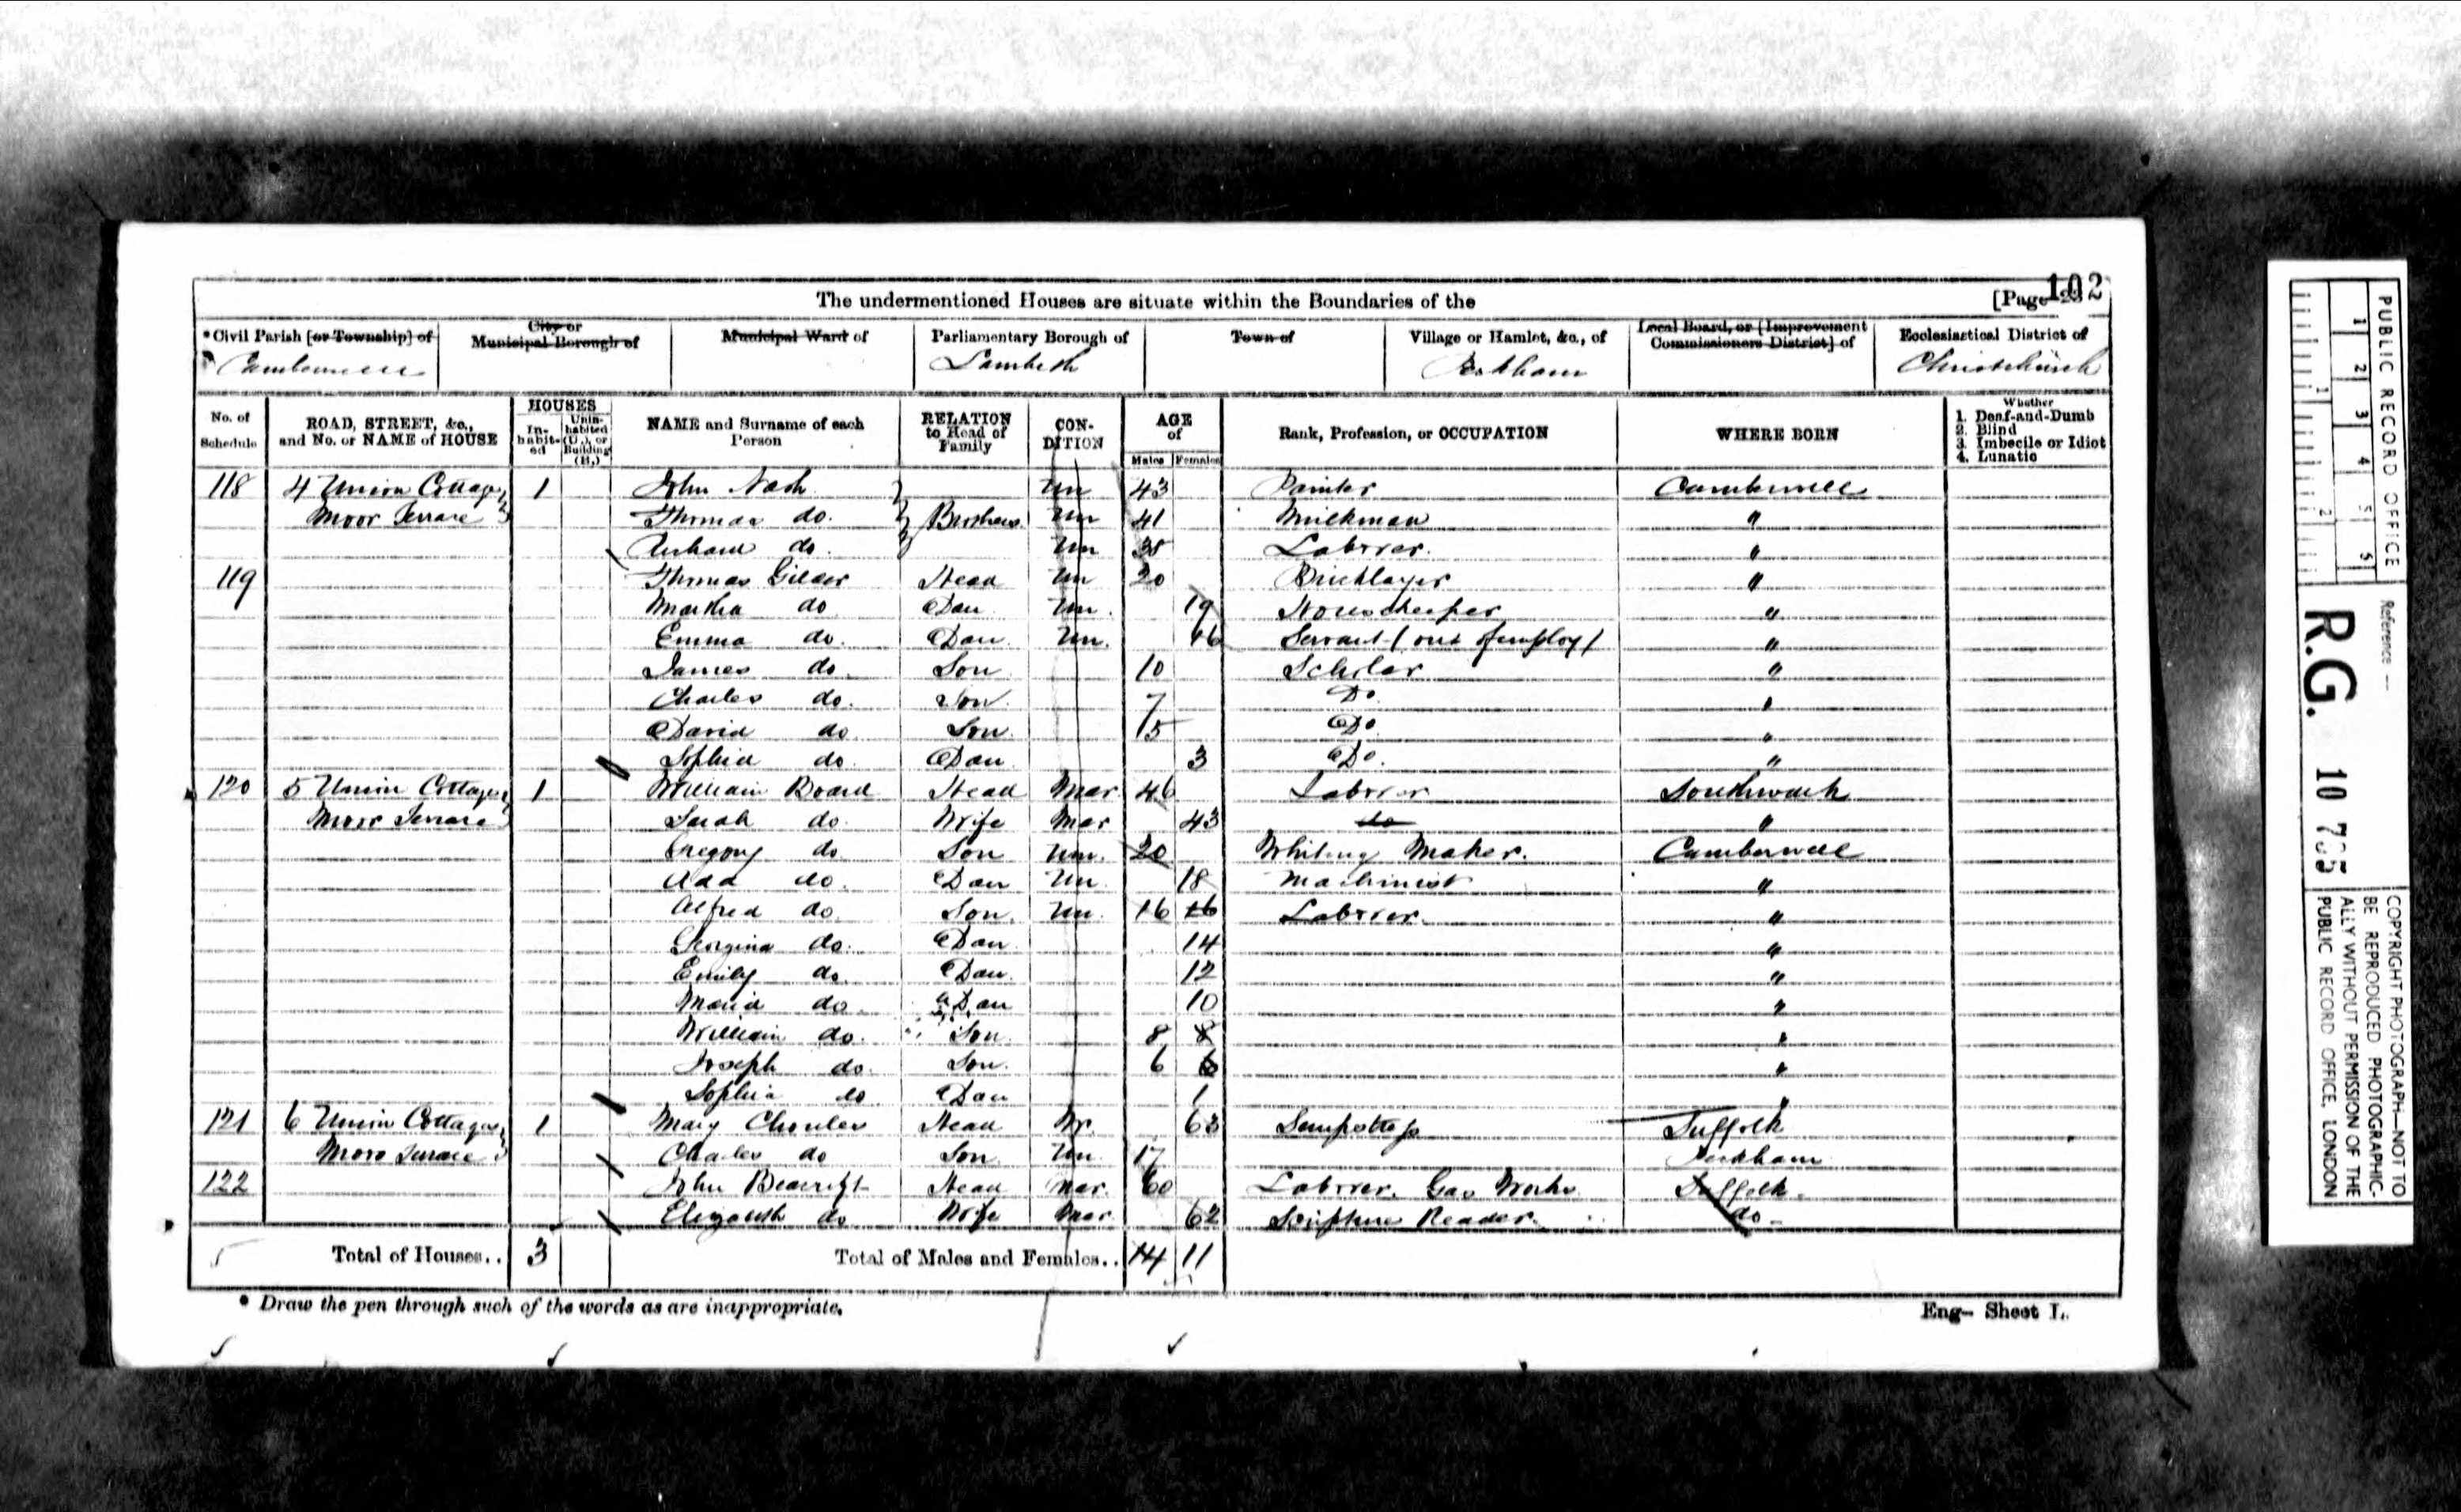 The undermentioned Houses are situate within the Boundaries of the
[Page 102
*Civil Parish [or Township] of
City or Municipal Borough of
Municipal Ward of
Parliamentary Borough of
Town of
Village or Hamlet, &c., of
Local Board, or [Improvement Commissioners District] of
Ecclesiastical District of
Camberwell Lambeth Peckham Christchurch
No. of Schedule
ROAD, STREET, &c., and No. or NAME of HOUSE
HOUSES
In-habit-ed
Unin-habited (U.), or Building (B.)
NAME and Surname of each Person
RELATION to Head of Family
CON-DITION
AGE of
Males Females
Rank, Profession, or OCCUPATION
WHERE BORN
Whether
1. Deaf-and-Dumb
2. Blind
3. Imbecile or Idiot
4. Lunatic
118 4 Union Cottages 1 John Nash Un 43 Painter Camberwell
Moor Terrace Thomas do. Brothers Un 41 Milkman "
Richard do. Un Laborer. "
119 Thomas Gilder Head Un 20 Bricklayer "
Martha do Dau Un. 19 Housekeeper "
Emma do. Dau Un. 16 Servant (out of employ) "
James do. Son 10 Scholar "
Charles do. Son 7 Do "
David do Son. 5 Do "
Sophia do. Dau 3 Do. "
120 5 Union Cottages 1 William Board Head Mar 46 Laborer Southwark
Moor Terrace Sarah do. Wife Mar 43 do "
Gregory do Son Un. 20 Whiting Maker. Camberwell
Ada do. Dau Un. 18 Machinist "
Alfred do. Son. Un. 16 16 Laborer. "
Georgina do. Dau 14 "
Emily do. Dau. 12 "
Maria do. Dau 10 "
William do. Son. 8 8 "
Joseph do. Son. 6 6 "
Sophia do Dau 1 "
121 6 Union Cottages 1 Mary Head Wr. 63 Sempstress Suffolk
Moor Terrace Charles do Son Un. 17 Peckham
122 John Head Mar. 60 Laborer. Gas Works Suffolk.
Elizabeth do Wife Mar. 62 Scripture Reader. do
Total of Houses.. 3 Total of Males and Females.. 14 11
* Draw the pen through such of the words as are inappropriate.
Eng— Sheet I.
PUBLIC RECORD OFFICE
1 2 3 4 5
1 2
Reference —
R.G. 10
COPYRIGHT PHOTOGRAPH—NOT TO
BE REPRODUCED PHOTOGRAPHIC-
ALLY WITHOUT PERMISSION OF THE
PUBLIC RECORD OFFICE, LONDON